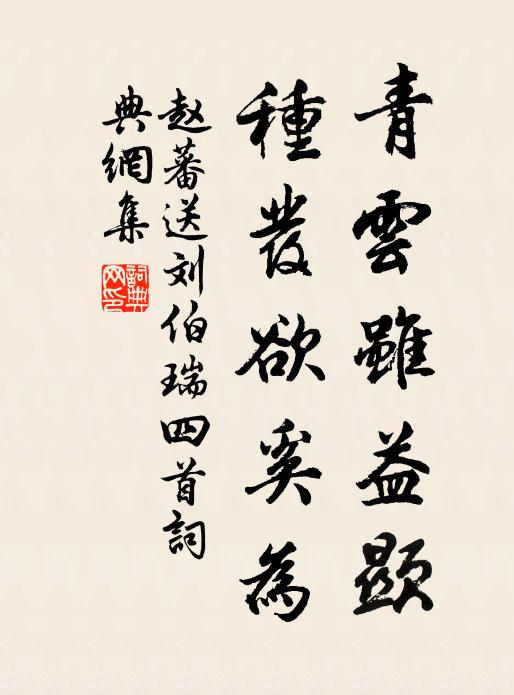 青雲雖益顯
種發欲奚為
赵蕃送刘伯瑞四首詞
典網集
詞典網印